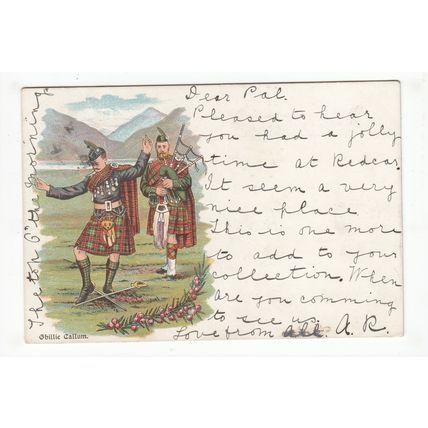 Dear Pal.
Pleased to hear
you had a jolly
time at Redcar.
It seem a very
nice place
This is one more
to add to your
collection. When
are you comming
to see us.
Love from all. A. R.
The top o' the morning
Ghillie Callum.